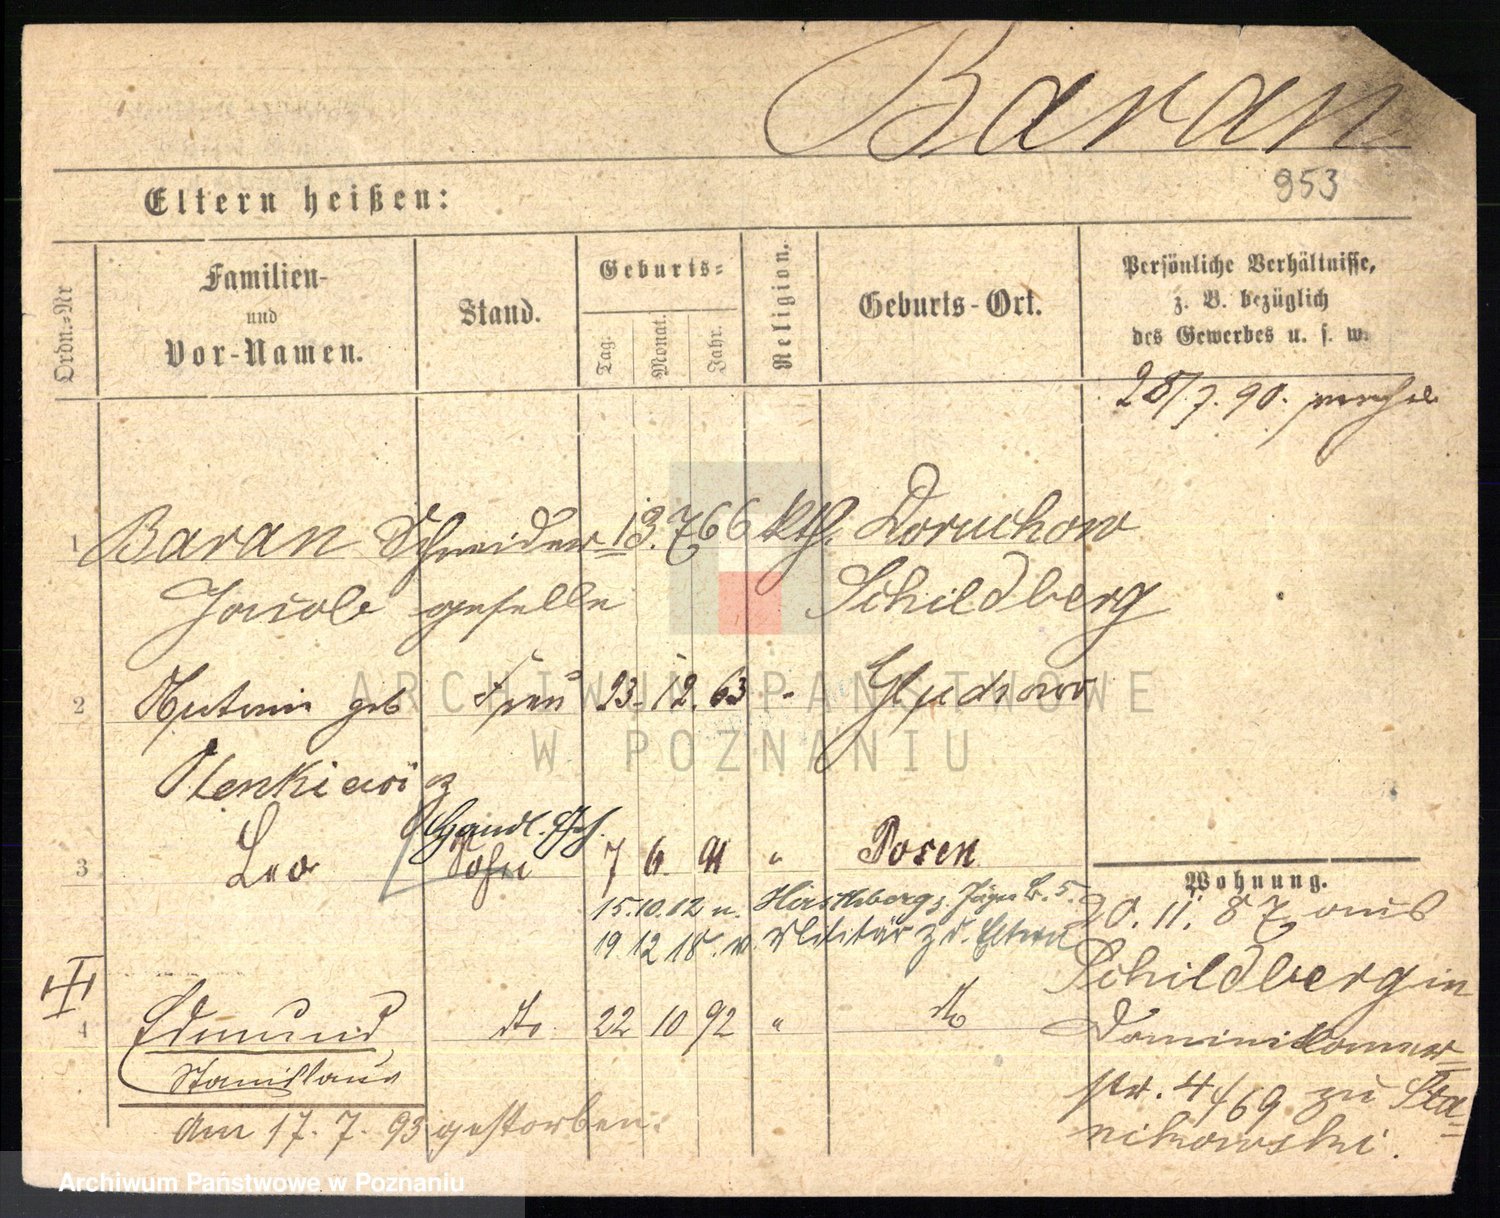 Baran
953
Eltern heißen:
Ordn.-Nr
Familien-
und
Vor-Namen.
Stand.
Geburts-
Tag.
Monat.
Jahr.
Religion.
Geburts-Ort.
Persönliche Verhältnisse,
z. B. bezüglich
des Gewerbes u. s. w.
28/7. 90.
1 Baran Schneider 13. 7 66 kth. Doruchow
Jacob geselle Schildberg
2 Antonie geb Frau 23. 12. 63 "
ARCHIWUM PAŃSTWOWE
W POZNANIU
Handl. Geh.
3 Leo Sohn 7 6. 91 " Posen
Wohnung.
15.10.12 n. Hirschberg z. Jäger B. 5.
20. 11. 87 aus
19. 12 18. v. Militär z. d. Eltern
Schildberg in
4 Edmund do 22 10 92 " do
Dominikaner
Stanislaus
str. 4/469 zu Sta-
Am 17. 7. 93 gestorben.
nikowski.
Archiwum Państwowe w Poznaniu